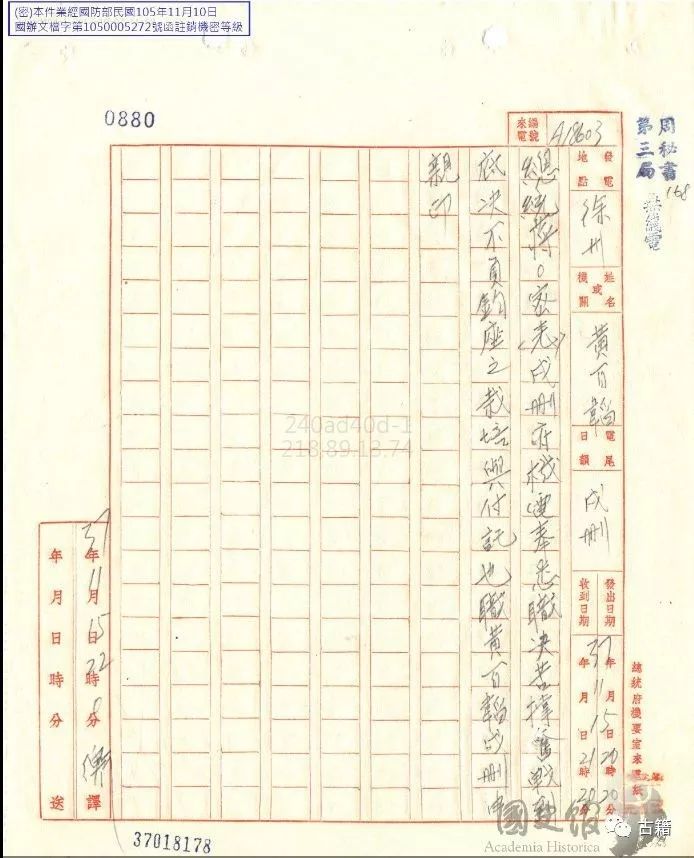 (密)本件業經國防部民國105年11月10日
國辦文檔字第1050005272號函註銷機密等級
0880
周秘書
第三局
168
無線電
來電
編號
A18603
發電地點
徐州
姓名或機關
黃百韜
電尾日韻
戌刪
發出日期
37年11月15日20時20分
收到日期
年月日21時20分
總統府機要室來電紙
總統蔣〇密(老)戌刪府機電奉悉職決苦撐奮戰到
底決不負鈞座之栽培與付託也職黃百韜戌刪申
親印
37年11月15日22時8分
譯
年月日時分送
240ad40d-1
218.89.13.74
37018178
國史館
Academia Historica
古籍